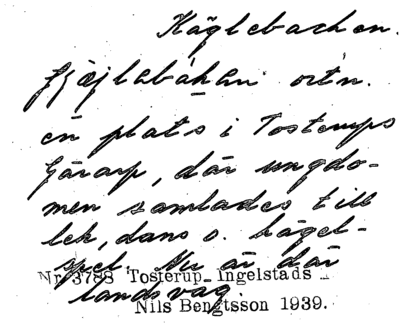 Käglebacken.
fjæjlabákan ortn.
en plats i Tosterups
Gärarp, där ungdo-
men samlades till
lek, dans o. kägel-
spel. Nu är där
Nr 3788 Tosterup Ingelstads
landsväg.
Nils Bengtsson 1939.